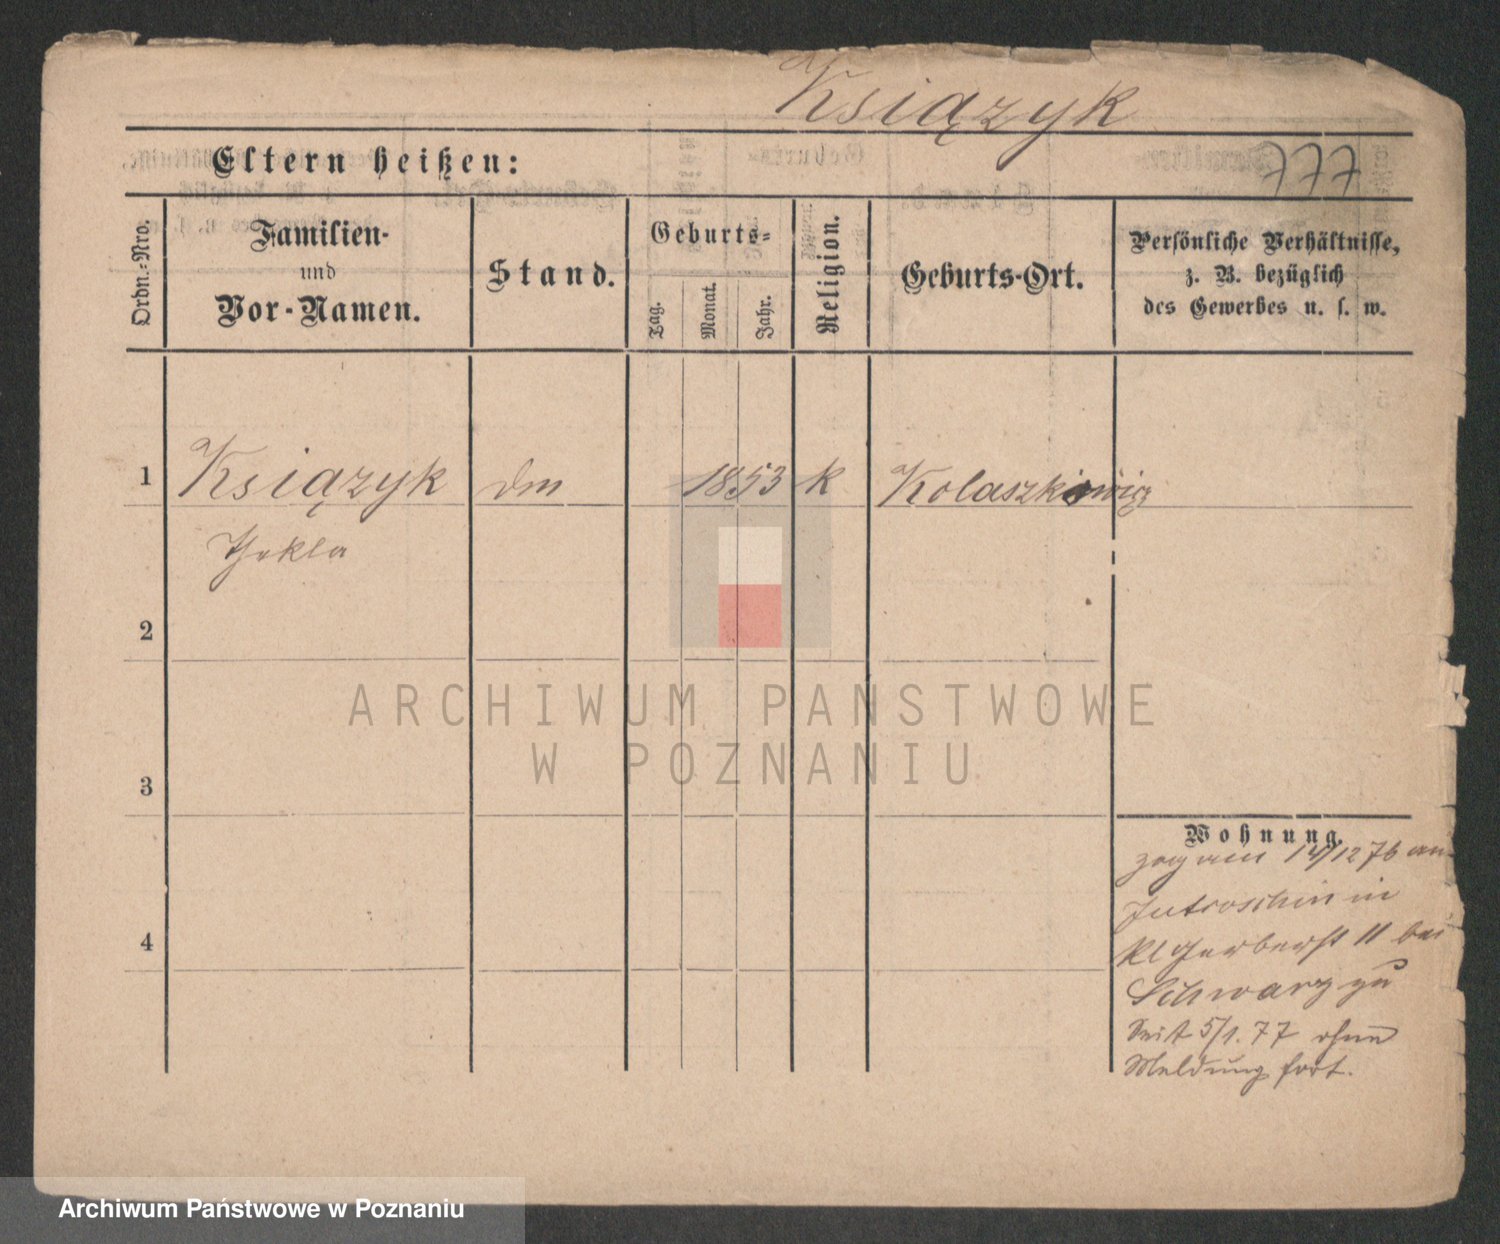 Książyk
Eltern heißen:
777
Ordn.-Nro.
Familien-
und
Vor-Namen.
Stand.
Geburts-
Tag.
Monat.
Jahr.
Religion.
Geburts-Ort.
Persönliche Verhältnisse,
z. B. bezüglich
des Gewerbes u. s. w.
1
Książyk
1853
k
Kolaszkowicz
Thekla
2
3
4
ARCHIWUM PAŃSTWOWE
W POZNANIU
Wohnung.
zog am 14/12 76 aus
Jutroschin in
kl Gerberst 11 bei
Schwarz zu
Seit 5/1. 77 ohne
Meldung fort.
Archiwum Państwowe w Poznaniu